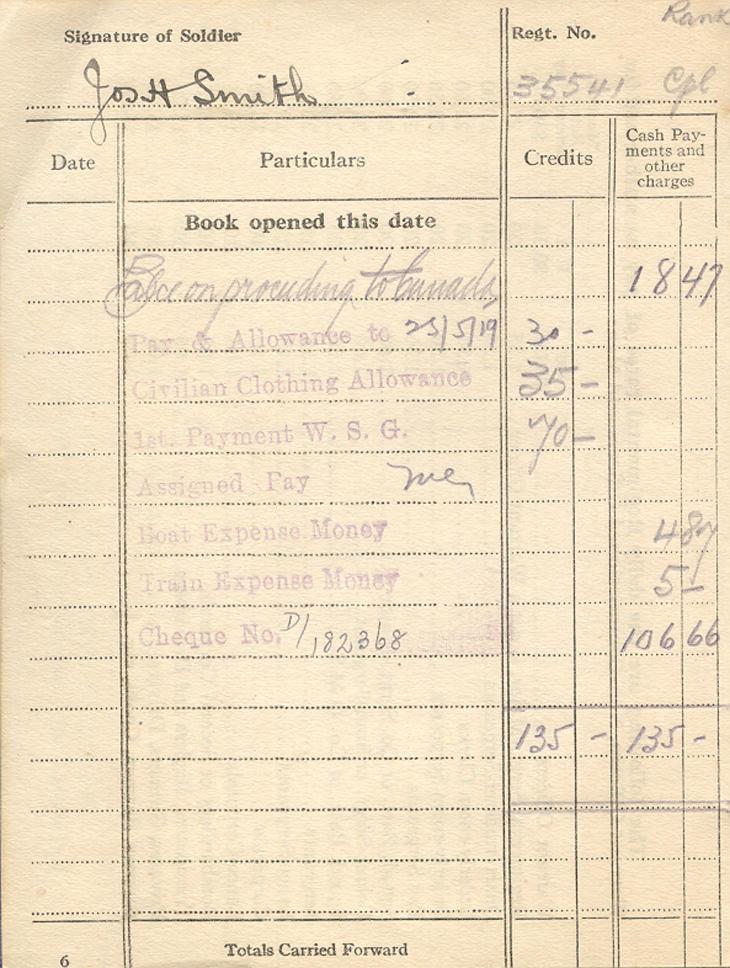 Rank
Signature of Soldier Regt. No.
Jos H Smith 35541 Cpl
Date Particulars Credits Cash Pay-
ments and
other
charges
Book opened this date
Balce on proceeding to Canada, 18 47
Pay & Allowance to 25/5/19 30 -
Civilian Clothing Allowance 35 -
1st. Payment W. S. G. 70 -
Assigned Pay
Boat Expense Money 4 87
Train Expense Money 5 -
Cheque No. D/182368 106 66
135 - 135 -
Totals Carried Forward
6